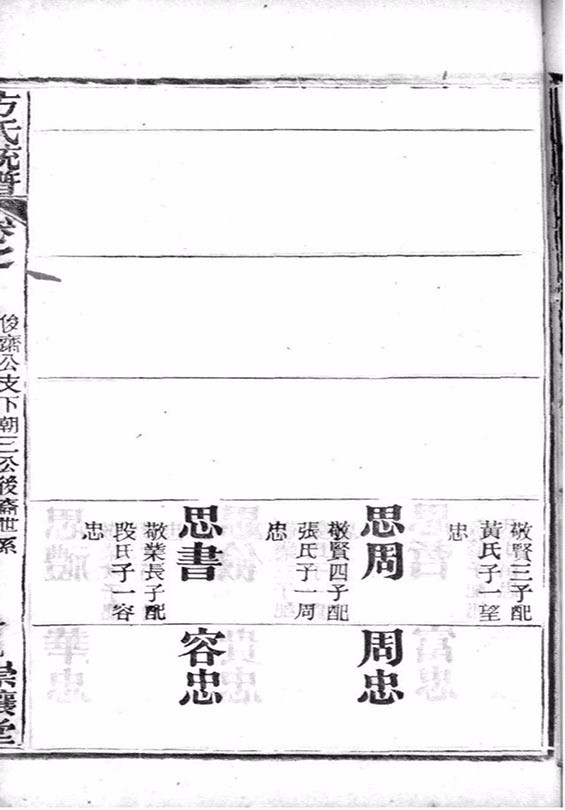 敬賢三子配
黃氏子一望
忠
思周
敬賢四子配
張氏子一周
忠
思書
敬業長子配
段氏子一容
忠
周忠
容忠
方氏統譜
卷之
俊齋公支下朝三公後裔世系